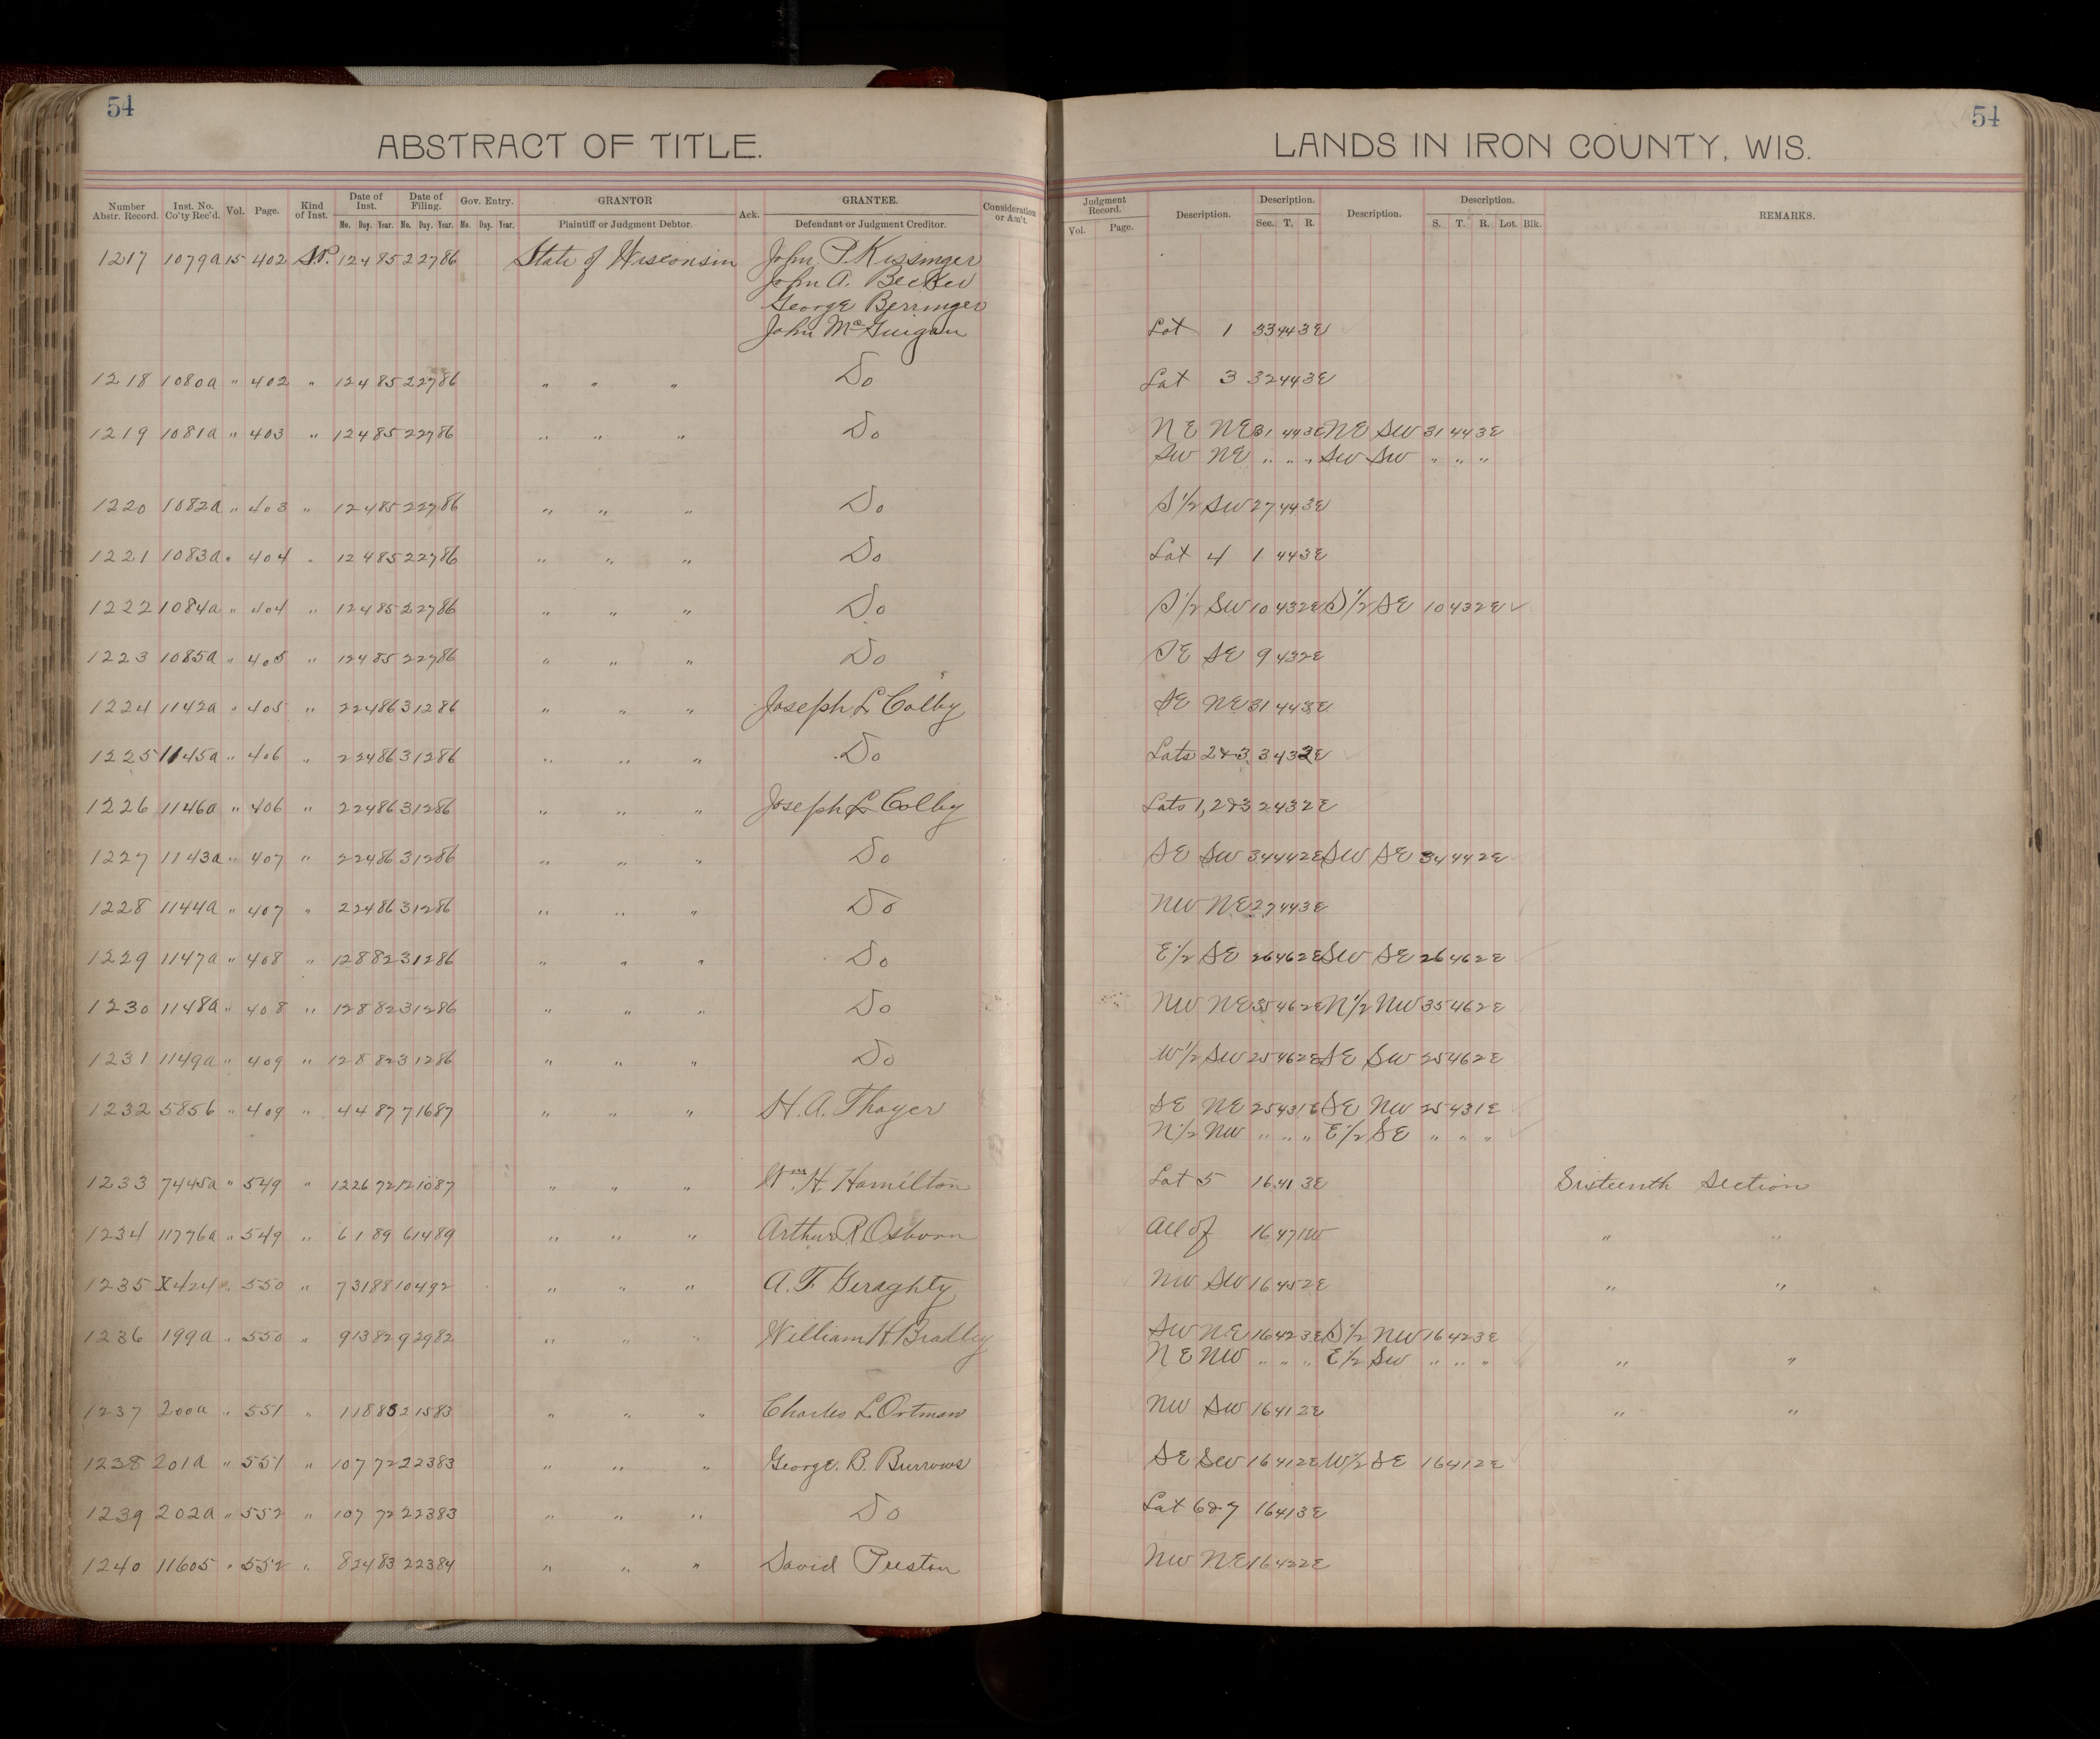 54
54
ABSTRACT OF TITLE.
LANDS IN IRON COUNTY, WIS.
Number Abstr. Record. Inst. No. Co'ty Rec'd. Vol. Page. Kind of Inst. Date of Inst. Mo. Day. Year. Date of Filing. Mo. Day. Year. Gov. Entry. Mo. Day. Year. GRANTOR Plaintiff or Judgment Debtor. Ack. GRANTEE. Defendant or Judgment Creditor. Consideration or Am't. Judgment Record. Vol. Page. Description. Description. Sec. T. R. Description. Description. S. T. R. Lot. Blk. REMARKS.
1217 1079a 15 402 S.P. 12 4 85 2 27 86 State of Wisconsin John P. Kissinger
John A. Becker
George Berringer
John McGuigan Lot 1 33 44 3E
1218 1080a " 402 " 12 4 85 2 27 86 " " " Do Lot 3 32 44 3E
1219 1081a " 403 " 12 4 85 2 27 86 " " " Do NE NE 31 44 3E NE SW 31 44 3E
SW NE " " " SW SW " " "
1220 1082a " 403 " 12 4 85 2 27 86 " " " Do S½ SW 27 44 3E
1221 1083a " 404 " 12 4 85 2 27 86 " " " Do Lot 4 1 44 3E
1222 1084a " 404 " 12 4 85 2 27 86 " " " Do S½ SW 10 43 2E S½ SE 10 43 2E
1223 1085a " 405 " 12 4 85 2 27 86 " " " Do SE SE 9 43 2E
1224 1142a " 405 " 2 24 86 3 12 86 " " " Joseph L Colby SE NE 31 44 3E
1225 1145a " 406 " 2 24 86 3 12 86 " " " Do Lots 2&3 3 43 2E
1226 1146a " 406 " 2 24 86 3 12 86 " " " Joseph L Colby Lots 1,2&3 2 43 2E
1227 1143a " 407 " 2 24 86 3 12 86 " " " Do SE SW 34 44 2E SW SE 34 44 2E
1228 1144a " 407 " 2 24 86 3 12 86 " " " Do NW NE 27 44 3E
1229 1147a " 408 " 12 8 82 3 12 86 " " " Do E½ SE 26 46 2E SW SE 26 46 2E
1230 1148a " 408 " 12 8 82 3 12 86 " " " Do NW NE 35 46 2E N½ NW 35 46 2E
1231 1149a " 409 " 12 8 82 3 12 86 " " " Do W½ SW 25 46 2E SE SW 25 46 2E
1232 5856 " 409 " 4 4 87 7 16 87 " " " H. A. Thayer SE NE 25 43 1E SE NW 25 43 1E
N½ NW " " " E½ SE " " "
1233 7445a " 549 " 12 26 72 12 10 87 " " " Wm. H. Hamilton Lot 5 16 41 3E Sixteenth Section
1234 11776a " 549 " 6 1 89 6 14 89 " " " Arthur R. Osborn All of 16 47 1W " "
1235 X424 " 550 " 7 31 88 10 4 92 " " " A. T. Geraghty NW SW 16 45 2E " "
1236 199a " 550 " 9 13 82 9 29 82 " " " William H Bradley SW NE 16 42 3E S½ NW 16 42 3E
NE NW " " " E½ SW " " " " "
1237 200a " 551 " 1 18 83 2 15 83 " " " Charles L. Ortman NW SW 16 41 2E " "
1238 201a " 551 " 10 7 72 2 23 83 " " " George. B. Burrows SE SW 16 41 2E W½ SE 16 41 2E
1239 202a " 552 " 10 7 72 2 23 83 " " " Do Lot 6&7 16 41 3E
1240 11605 " 552 " 8 24 83 2 23 84 " " " David Preston NW NE 16 42 2E